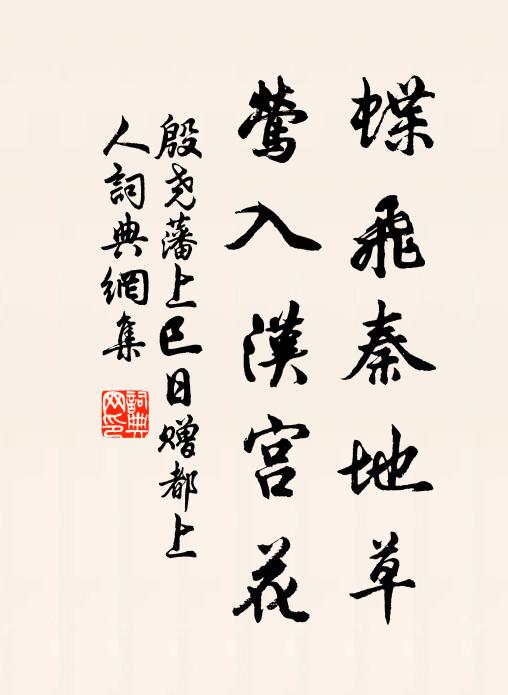 蝶飛秦地草
鶯入漢宮花
殷尧藩上巳日赠都上
人詞典網集
詞典
网印